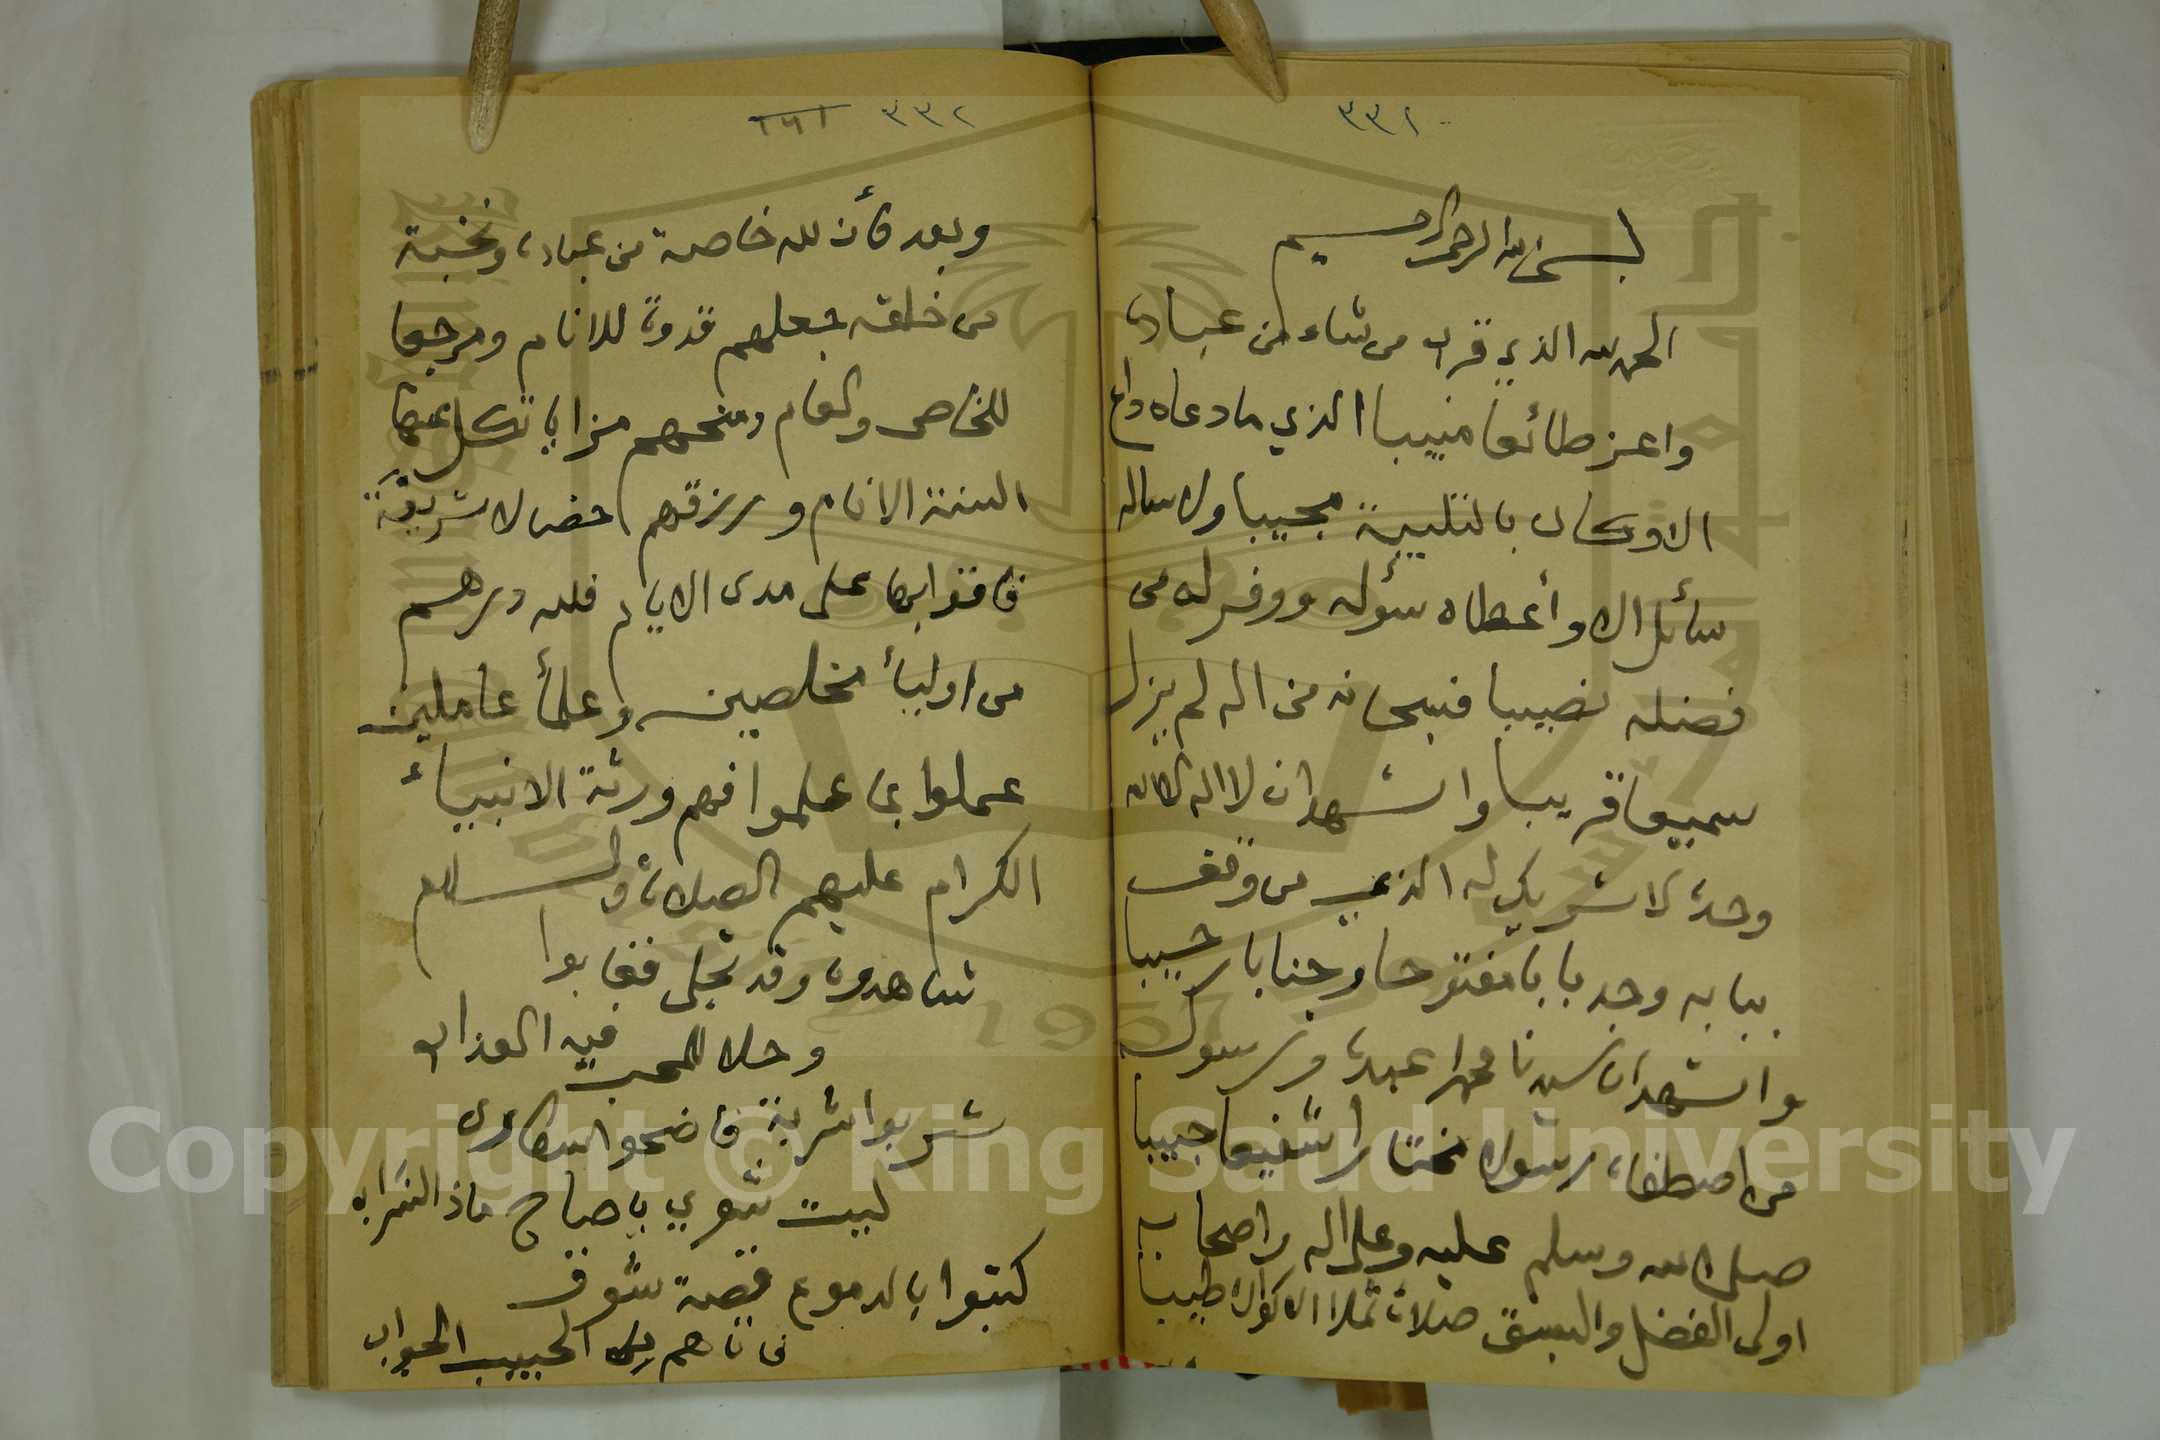 ٣٣١
بسم الله الرحمن الرحيم
الحمد لله الذي قرب من شاء من عباده
واعز طائعا منيبا الذي ما دعاه داع
الا وكان بالتلبية مجيبا ولا ساله
سائل الا وأعطاه سؤله ووفر له من
فضله نصيبا فسبحانه من اله لم يزل
سميعا قريبا واشهد ان لا اله الا الله
وحده لا شريك له الذي من وقف
ببابه وجد بابا مفتوحا وجنابا رحيبا
واشهد ان سيدنا محمدا عبده ورسوله
من اصطفاه رسولا مختارا شفيعا حبيبا
صلى الله وسلم عليه وعلى اله واصحابه
اولى الفضل والسبق صلاة تملا الاكوان طيبا
٣٣٢ ١٦١
وبعد فأن لله خاصة من عباده ونخبة
من خلقه جعلهم قدوة للانام ومرجعا
للخاص والعام ومنحهم مزايا تكل عنها
السنة الانام ورزقهم خصالا شريفة
فاقوا بها على مدى الايام فلله درهم
من اوليأ مخلصين وعلمأ عاملين
عملوا بما علموا فهم ورثة الانبياء
الكرام عليهم الصلاة والسلام
شاهدوه وقد تجلى فغابوا
وحلا للمحب فيه العذاب
شربوا شربة فاضحوا سكارى
ليت شعري يا صاح ماذا الشراب
كتبوا بالدموع قصة شوق
فاتاهم من الحبيب الجواب
Copyright © King Saud University
1957